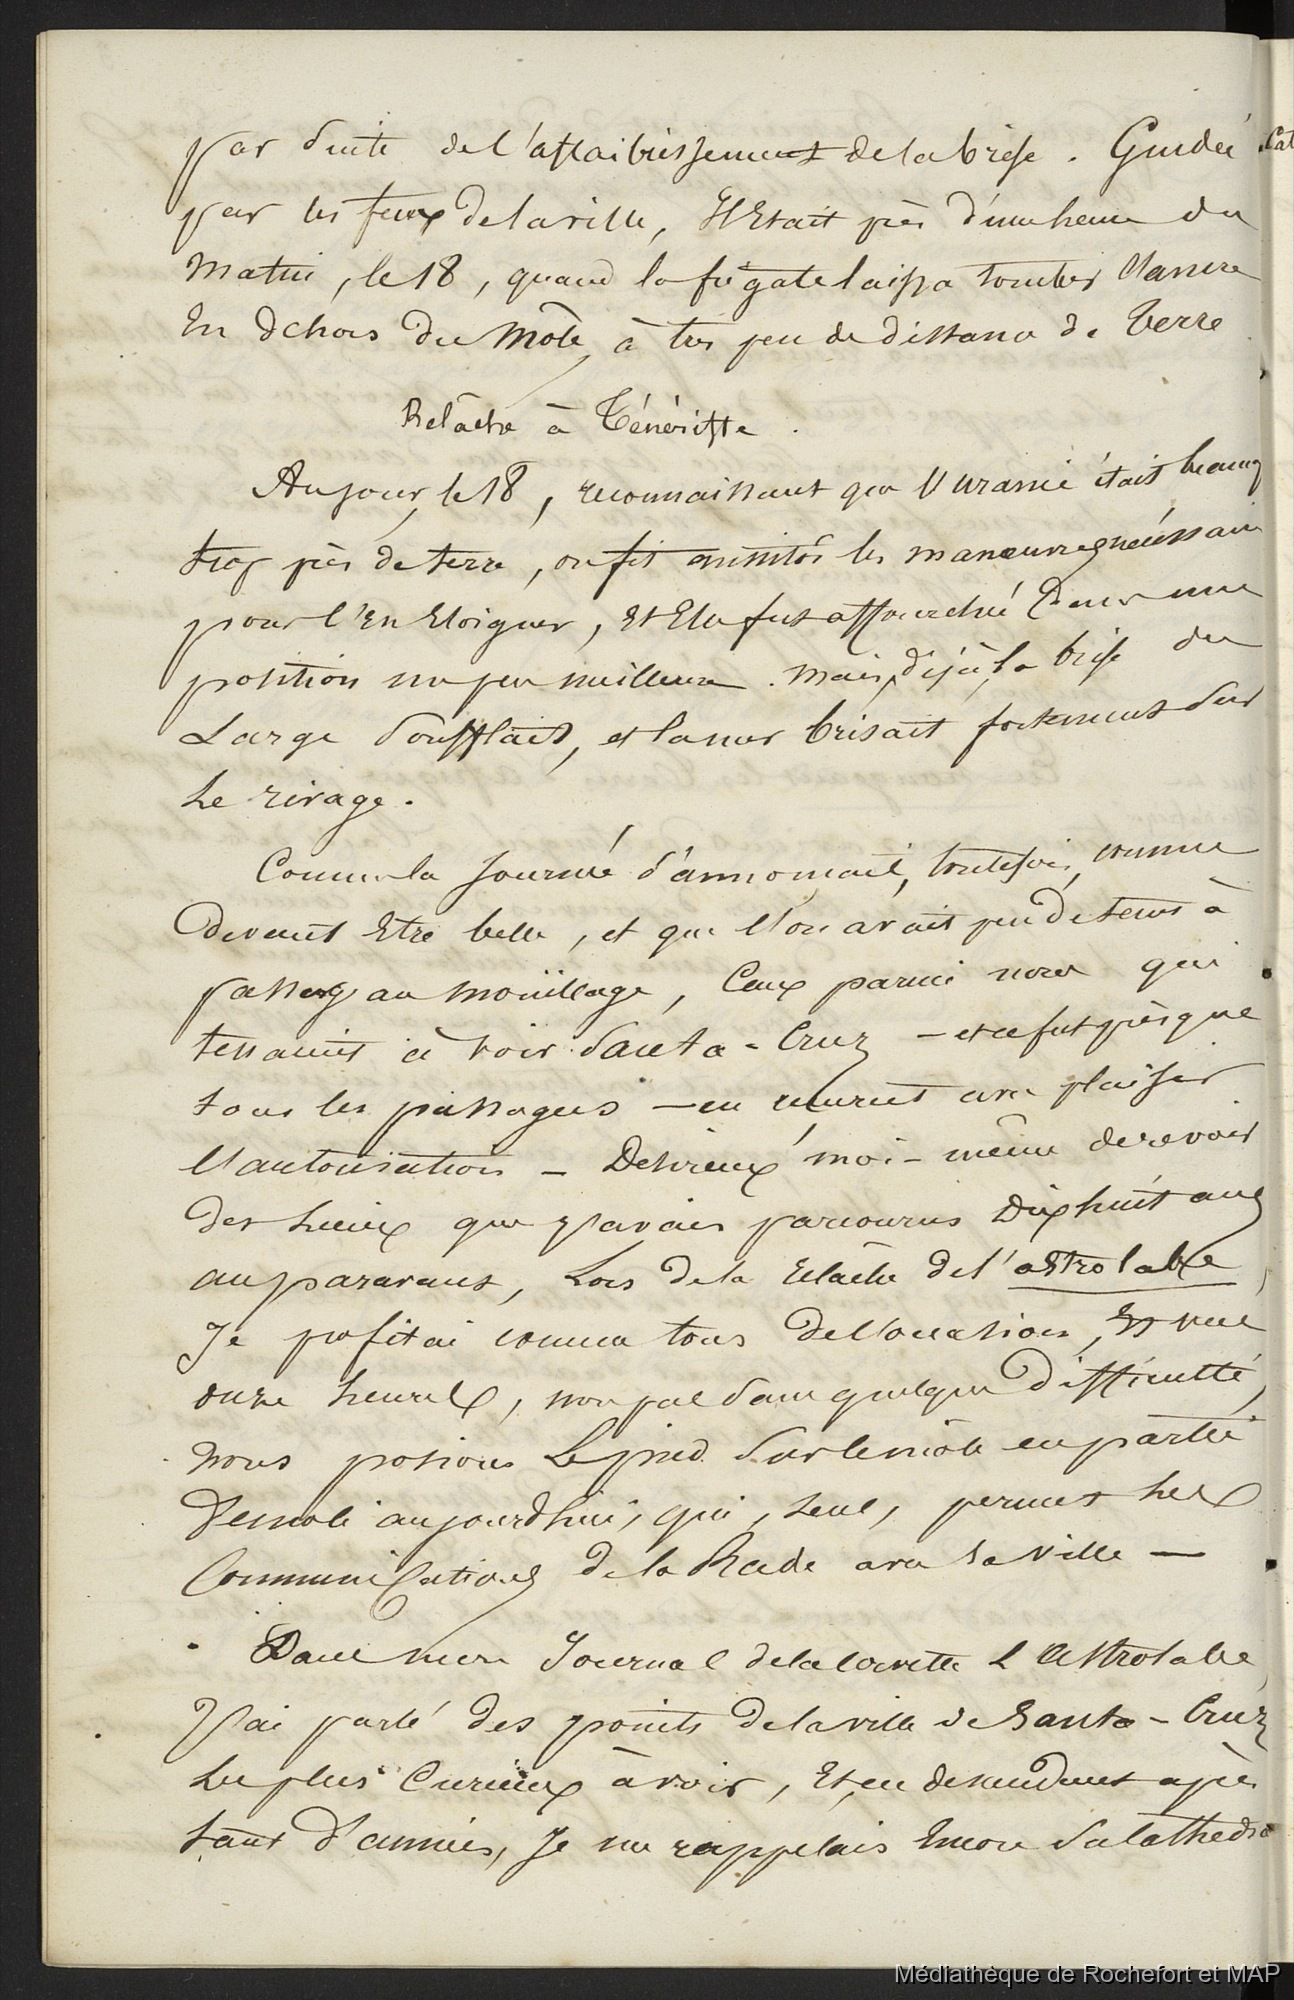 par suite de l'affaiblissement de la brise. Guidée
par les feux de la ville, Il Etait près d'une heure du
matin, le 18, quand la frégate laissa tomber l'ancre
En dehors du Môle, à très peu de distance de terre
Relâche à Ténériffe.
Au jour, le 18, reconnaissant que l'uranie était beaucoup
trop près de terre, on fit aussitôt les manoeuvres nécessaires
pour l'En Eloigner, Et Elle fut affourchée dans une
position un peu meilleure. Mais, déjà, la brise du
Large soufflait, et la mer brisait fortement sur
Le rivage.
Comme la journée s'annonçait, toutefois, comme
devant Etre belle, et que l'on avait peu de tems à
passer au mouillage, Ceux parmi nous qui
tenaient à voir Santa-Cruz — et ce fut presque
tous les passagers — en reçurent avec plaisir
l'autorisation — Désireux moi-même de revoir
des Lieux que j'avais parcourus Dix huit ans
auparavant, Lors de la relâche de l'astrolabe,
Je profitai comme tous de l'occasion, Et vers
onze heures, non pas sans quelque difficulté,
nous posions Le pied sur le môle en partie
démoli aujourd'hui, qui, seul, permet Les
Communications de la Rade avec la ville —
Dans mon Journal de la corvette L'Astrolabe
J'ai parlé des points de la ville de Santa-Cruz
Les plus Curieux à voir, Et, en descendant après
tant d'années, Je me rappelais Encore sa cathédra
Cat
Médiathèque de Rochefort et MAP